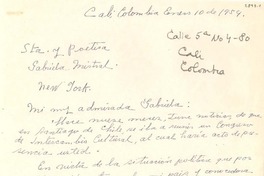 Cali Colombia Enero 10 de 1954.
Calle 5ª No 4-80
Cali
Colombia
Sta. y Poetisa
Gabriela Mistral.
New York.
Mi muy admirada Gabriela:
Hace nueve meses, tuve noticias de que
en Santiago de Chile, se iba a reunir un Congreso
de Intercambio Cultural, al cual haría acto de pre-
sencia usted.
En vista de la situación política que por